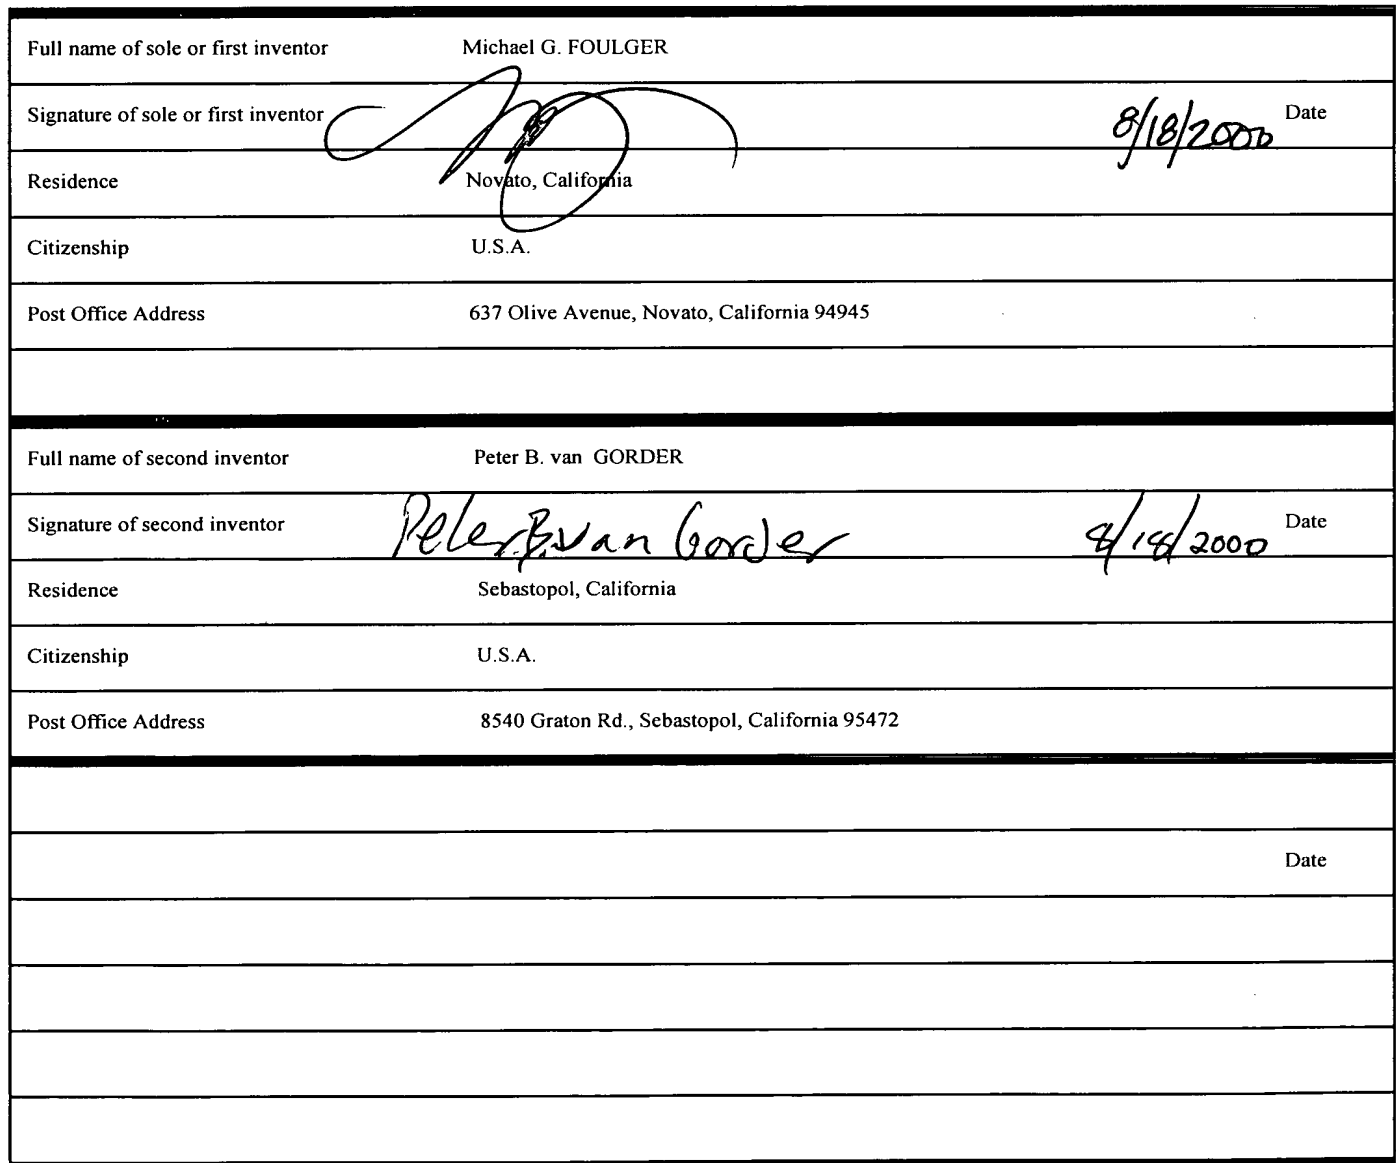 Full name of sole or first inventor Michael G. FOULGER
Signature of sole or first inventor 8/18/2000 Date
Residence Novato, California
Citizenship U.S.A.
Post Office Address 637 Olive Avenue, Novato, California 94945
Full name of second inventor Peter B. van GORDER
Signature of second inventor Peter B. van Gorder 8/18/2000 Date
Residence Sebastopol, California
Citizenship U.S.A.
Post Office Address 8540 Graton Rd., Sebastopol, California 95472
Date